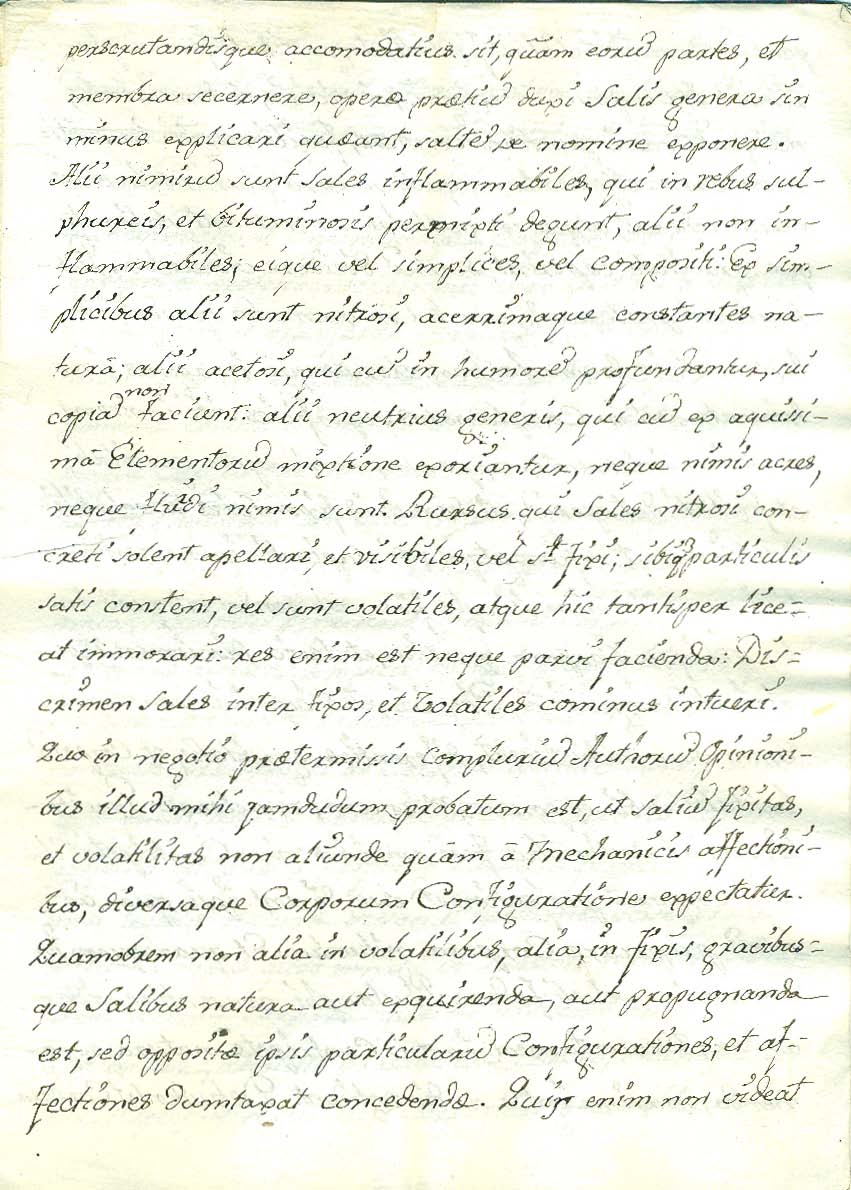 perscrutandisque accomodatius sit, quãm eorũ partes, et
membra secernere, operæ prætiũ duxi Salis genera sin
minus explicari quæant, saltẽ re nomine exponere.
Alii nimirũ sunt sales inflammabiles, qui in rebus sul-
phureis, et bituminosis permixti degunt, alii non in-
flammabiles; eique vel simplices, vel compositi: Ex sim-
plicibus alii sunt nitrosi, acerrimaque constantes na-
turâ; alii acetosi, qui cũ in humorẽ profundantur, sui
copiã non faciunt: alii neutrius generis, qui cũ ex aquissi-
mâ Elementorũ mixtione exoriantur, neque nimis acres,
neque fluidi nimis sunt. Rursus qui Sales nitrosi con-
creti solent apellari, et visibiles, vel st fixi; sibiq particulis
satis constent, vel sunt volatiles, atque hic tantisper lice=
at immorari: res enim est neque parvi facienda: Dis=
crimen Sales inter fixos, et Volatiles cominus intueri.
Quo in negotio prætermissis compluriũ Authorũ Opinioni-
bus illud mihi jamdudum probatum est, ut saliũ fixitas,
et volatilitas non aliunde quãm â Mechanicis affectioni-
bus, diversaque Corporum Configuratione expectatur.
Quamobrem non alia in volatilibus, alia in fixis, gravibus=
que Salibus natura aut exquirenda, aut propugnanda
est, sed oppositæ ipsis particularũ Configurationes, et af-
fectiones dumtaxat concedendæ. Quis enim non videat